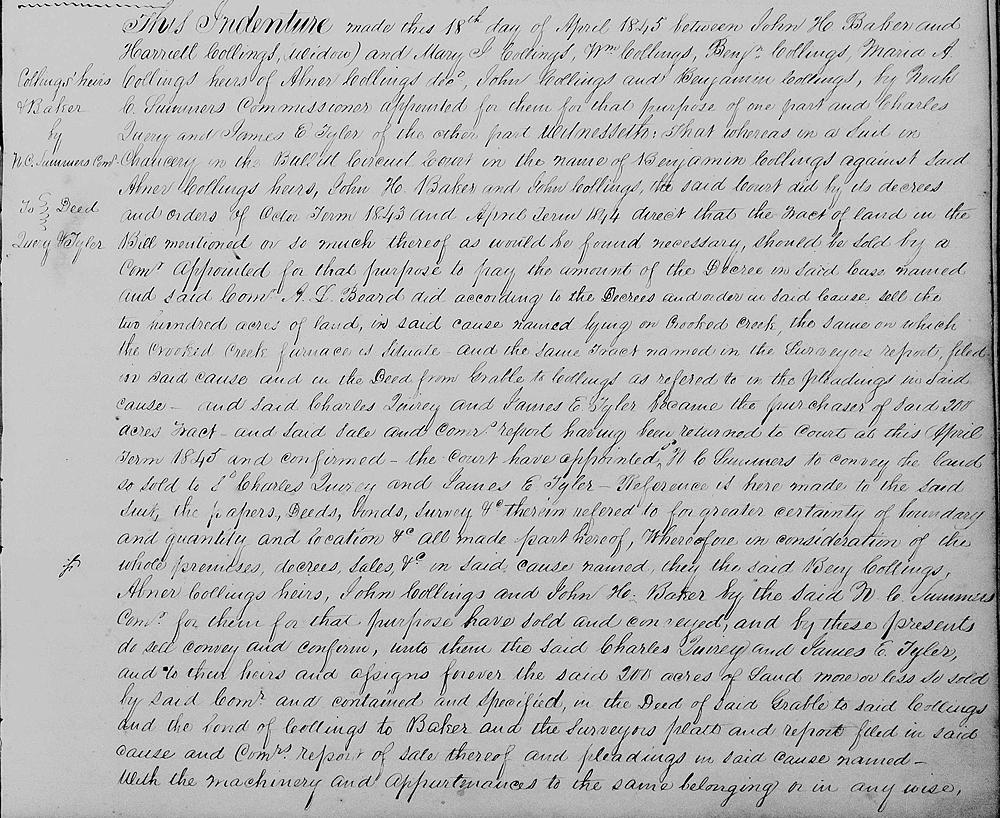 This Indenture made this 18th day of April 1845 between John H. Baker and
Harriett Collings, (widow) and Mary J Collings, Wm Collings, Benjn Collings, Maria A.
Collings heirs of Abner Collings decd, John Collings and Benjamin Collings, by Noah
C. Summers Commissioner appointed for them for that purpose of one part and Charles
Quirey and James E Tyler of the other part Witnesseth: That whereas in a Suit in
Chancery in the Bullitt Circuit Court in the name of Benjamin Collings against Said
Abner Collings heirs, John H. Baker and John Collings, the said Court did by its decrees
and orders of Octer Term 1843 and April Term 1844 direct that the Tract of land in the
Bill mentioned or so much thereof as would be found necessary, should be sold by a
Comr appointed for that purpose to pay the amount of the Decree in said Case named
and said Comr A. D. Beard did according to the Decrees and order in said Cause sell the
two hundred acres of land, in said cause named lying on Crooked Creek, the same on which
the Crooked Creek furnace is situate and the same Tract named in the Surveyors report, filed
in said cause and in the Deed from Grable to Collings as refered to in the pleadings in said
cause - and said Charles Quirey and James E Tyler became the purchaser of said 200
acres Tract - and said sale and Comrs report having been returned to Court at this April
Term 1845 and confirmed - the Court have appointed sd N C Summers to convey the land
so sold to sd Charles Quirey and James E. Tyler - Reference is here made to the said
Suit, the papers, Deeds, bonds, survey &c therein refered to for greater certainty of boundary
and quantity and location &c all made part hereof, Wherefore in consideration of the
whole premises, decrees, sales, &c in said cause named, they the said Benj Collings,
Abner Collings heirs, John Collings and John H. Baker by the said N C Summers
Comr for them for that purpose have sold and conveyed, and by these presents
do sell convey and confirm, unto them the said Charles Quirey and James E. Tyler,
and to their heirs and assigns forever the said 200 acres of Land more or less so sold
by said Comr and contained and specified, in the Deed of said Grable to said Collings
and the bond of Collings to Baker and the Surveyors platt and report filed in said
cause and Comrs report of sale thereof and pleadings in said cause named -
With the machinery and appurtenances to the same belonging or in any wise,
Collings' heirs
& Baker
by
N.C. Summers Comr
To Deed
Quirey & Tyler